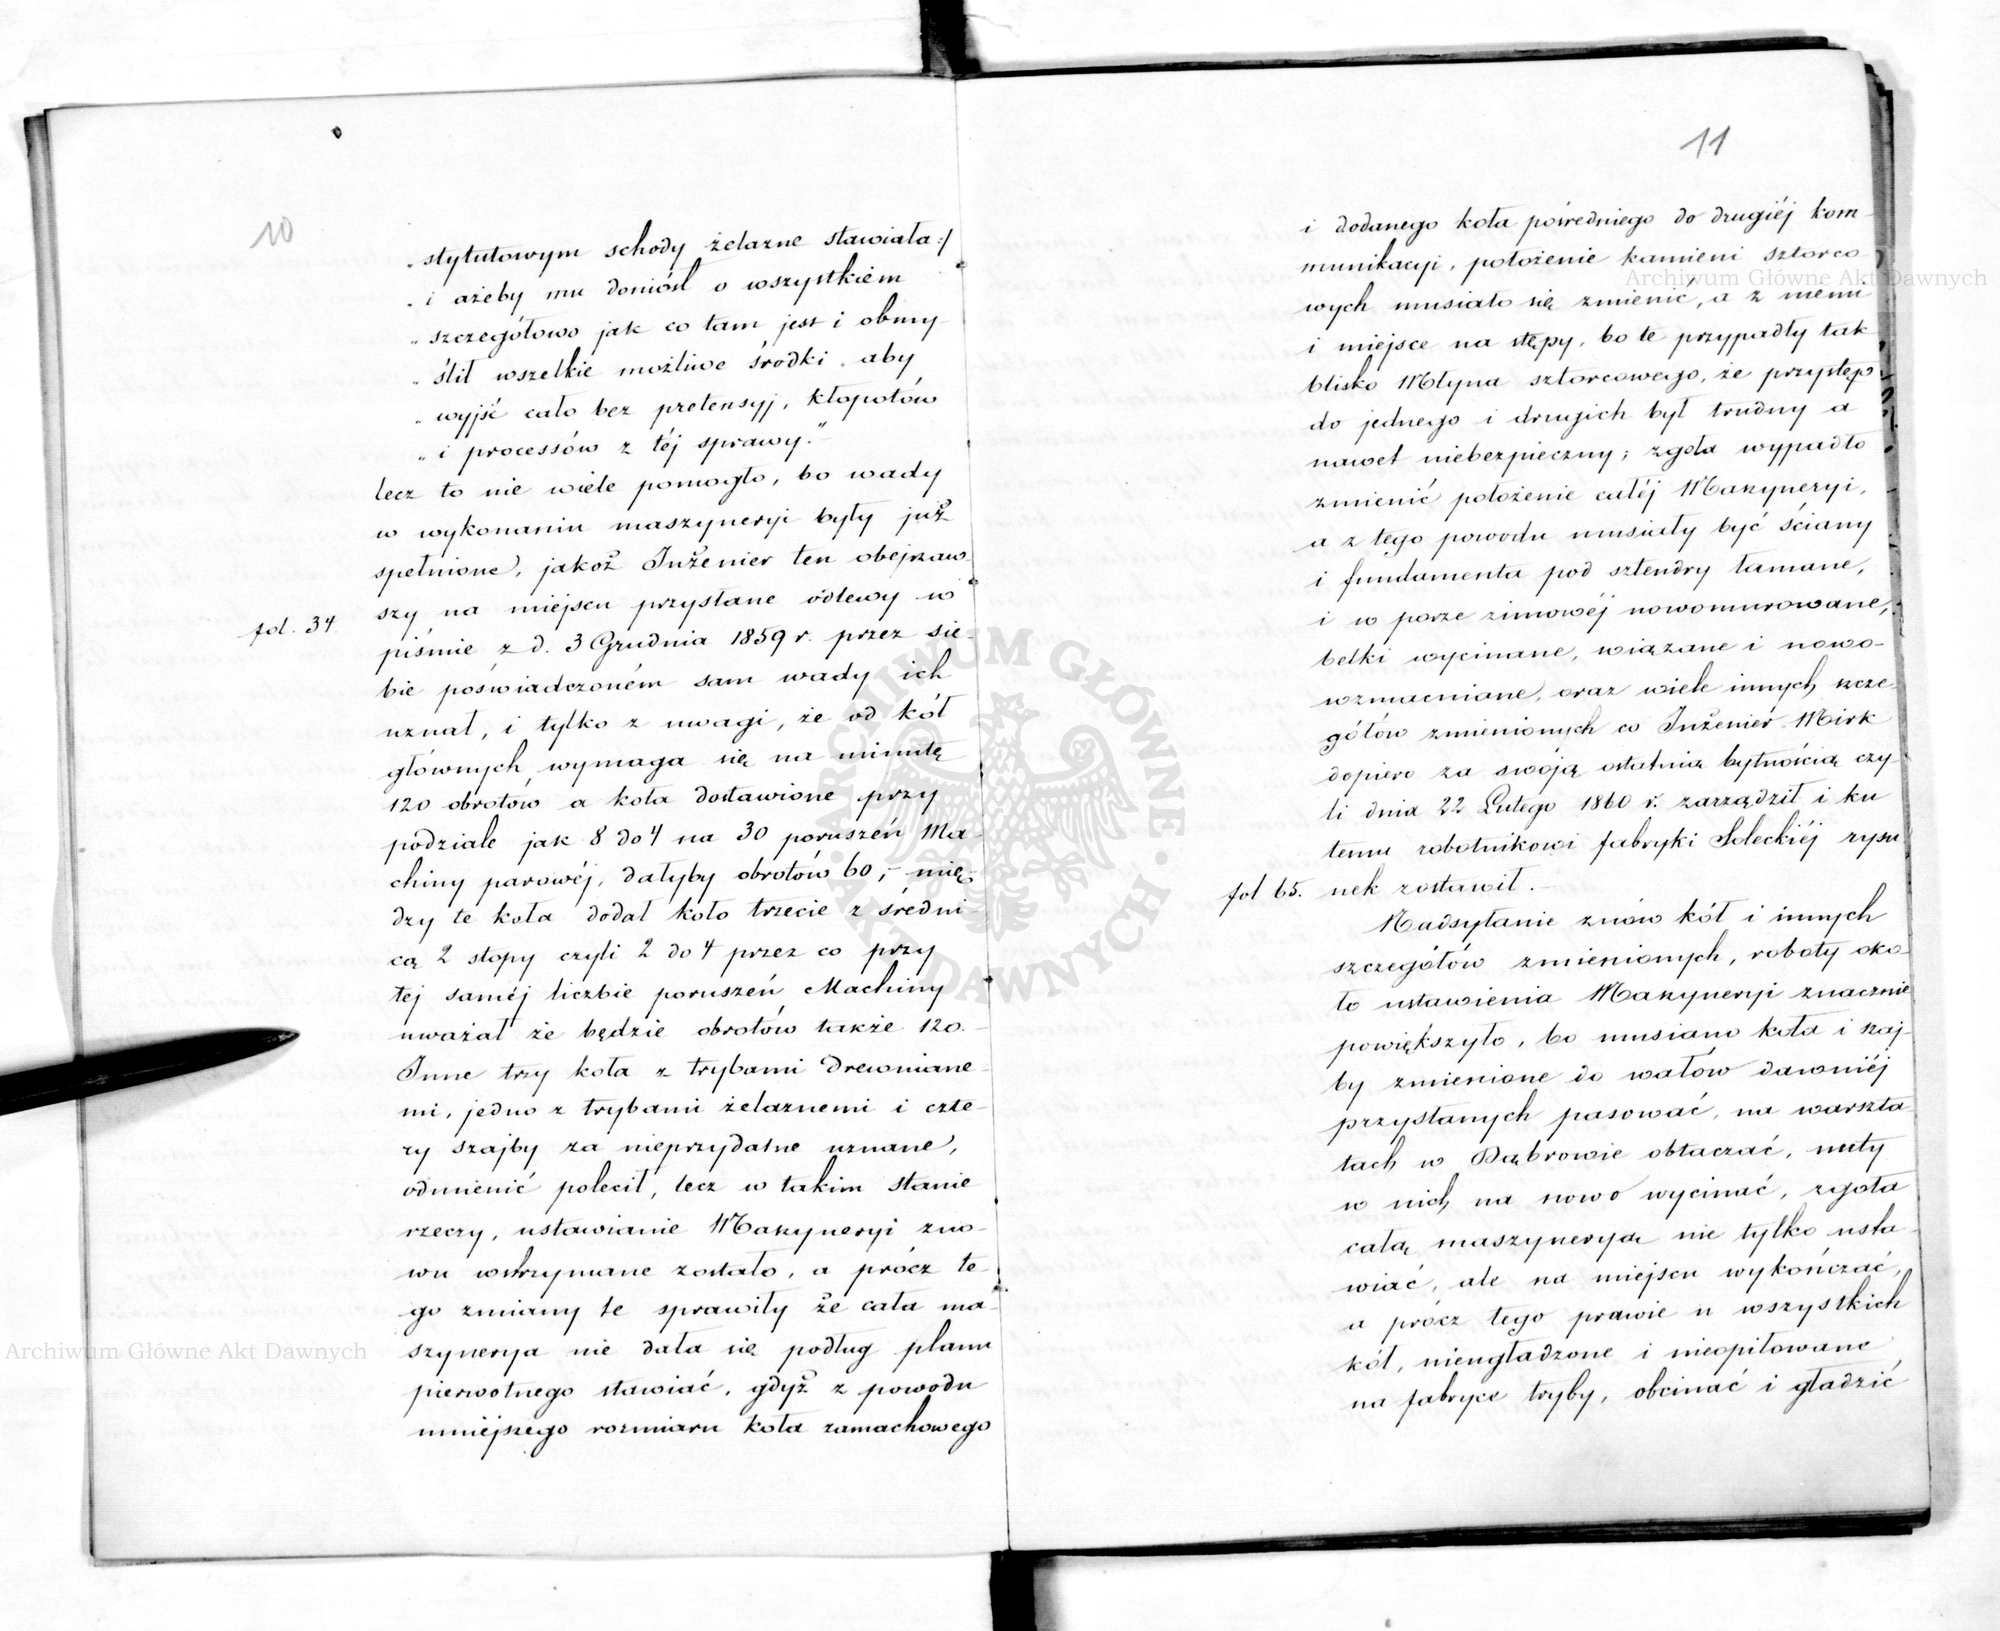 10
„ stytutowym schody żelazne stawiała:/
„ i ażeby mu doniósł o wszystkiem
„ szczegółowo jak co tam jest i obmy-
„ ślił wszelkie możliwe środki, aby
„ wyjść cało bez pretensyj, kłopotów
„ i processów z téj sprawy."–
lecz to nie wiele pomogło, bo wady
w wykonaniu maszyneryi były już
spełnione, jakoż Inżenier ten obejrzaw-
szy na miejscu przysłane odlewy w
fol. 34. piśmie z d. 3 Grudnia 1859 r. przez sie-
bie poświadczoném sam wady ich
uznał, i tylko z uwagi, że od kół
głównych wymaga się na minutę
120 obrotów a koła dostawione przy
podziale jak 8 do 4 na 30 poruszeń Ma-
chiny parowéj, dałyby obrotów 60,– mię-
dzy te koła dodał koło trzecie z średni-
cą 2 stopy czyli 2 do 4 przez co przy
tej saméj liczbie poruszeń Machiny
uważał że będzie obrotów także 120.–
Inne trzy koła z trybami drewniane-
mi, jedno z trybami żelaznemi i czte-
ry szajby za nieprzydatne uznane,
odmienić polecił, lecz w takim stanie
rzeczy, ustawianie Maszyneryi zno-
wu wstrzymane zostało, a prócz te-
go zmiany te sprawiły że cała ma-
szynerya nie dała się podług planu
pierwotnego stawiać, gdyż z powodu
mniéjszego rozmiaru koła zamachowego
11
i dodanego koła pośredniego do drugiéj kom-
munikacyi, położenie kamieni sztorco-
wych musiało się zmienić, a z niemi
i miejsce na stępy, bo te przypadły tak
blisko Młyna sztorcowego, że przystęp
do jednego i drugich był trudny a
nawet niebezpieczny; zgoła wypadło
zmienić położenie całéj Maszyneryi,
a z tego powodu musiały być ściany
i fundamenta pod sztendry łamane,
i w porze zimowéj nowomurowane,
belki wycinane, wiązane i nowo-
wzmacniane, oraz wiele innych szcze-
gółów zmienionych co Inżenier Mirk
dopiero za swoją ostatnią bytnością czy-
li dnia 22 Lutego 1860 r. zarządził i ku
temu robotnikowi fabryki Soleckiéj rysu
fol 65. nek zostawił.–
Nadsyłanie znów kół i innych
szczegółów zmienionych, roboty oko-
ło ustawienia Maszyneryi znacznie
powiększyło, bo musiano koła i szaj-
by zmienione do wałów dawniéj
przysłanych pasować, na warszta-
tach w Dąbrowie obtaczać, nuty
w nich na nowo wycinać, zgoła
całą maszyneryą nie tylko usta-
wiać, ale na miejscu wykończać,
a prócz tego prawie u wszystkich
kół, nieugładzone i nieopiłowane
na fabryce tryby, obcinać i gładzić
Archiwum Główne Akt Dawnych
Archiwum Główne Akt Dawnych
ARCHIWUM GŁÓWNE
· AKT DAWNYCH ·